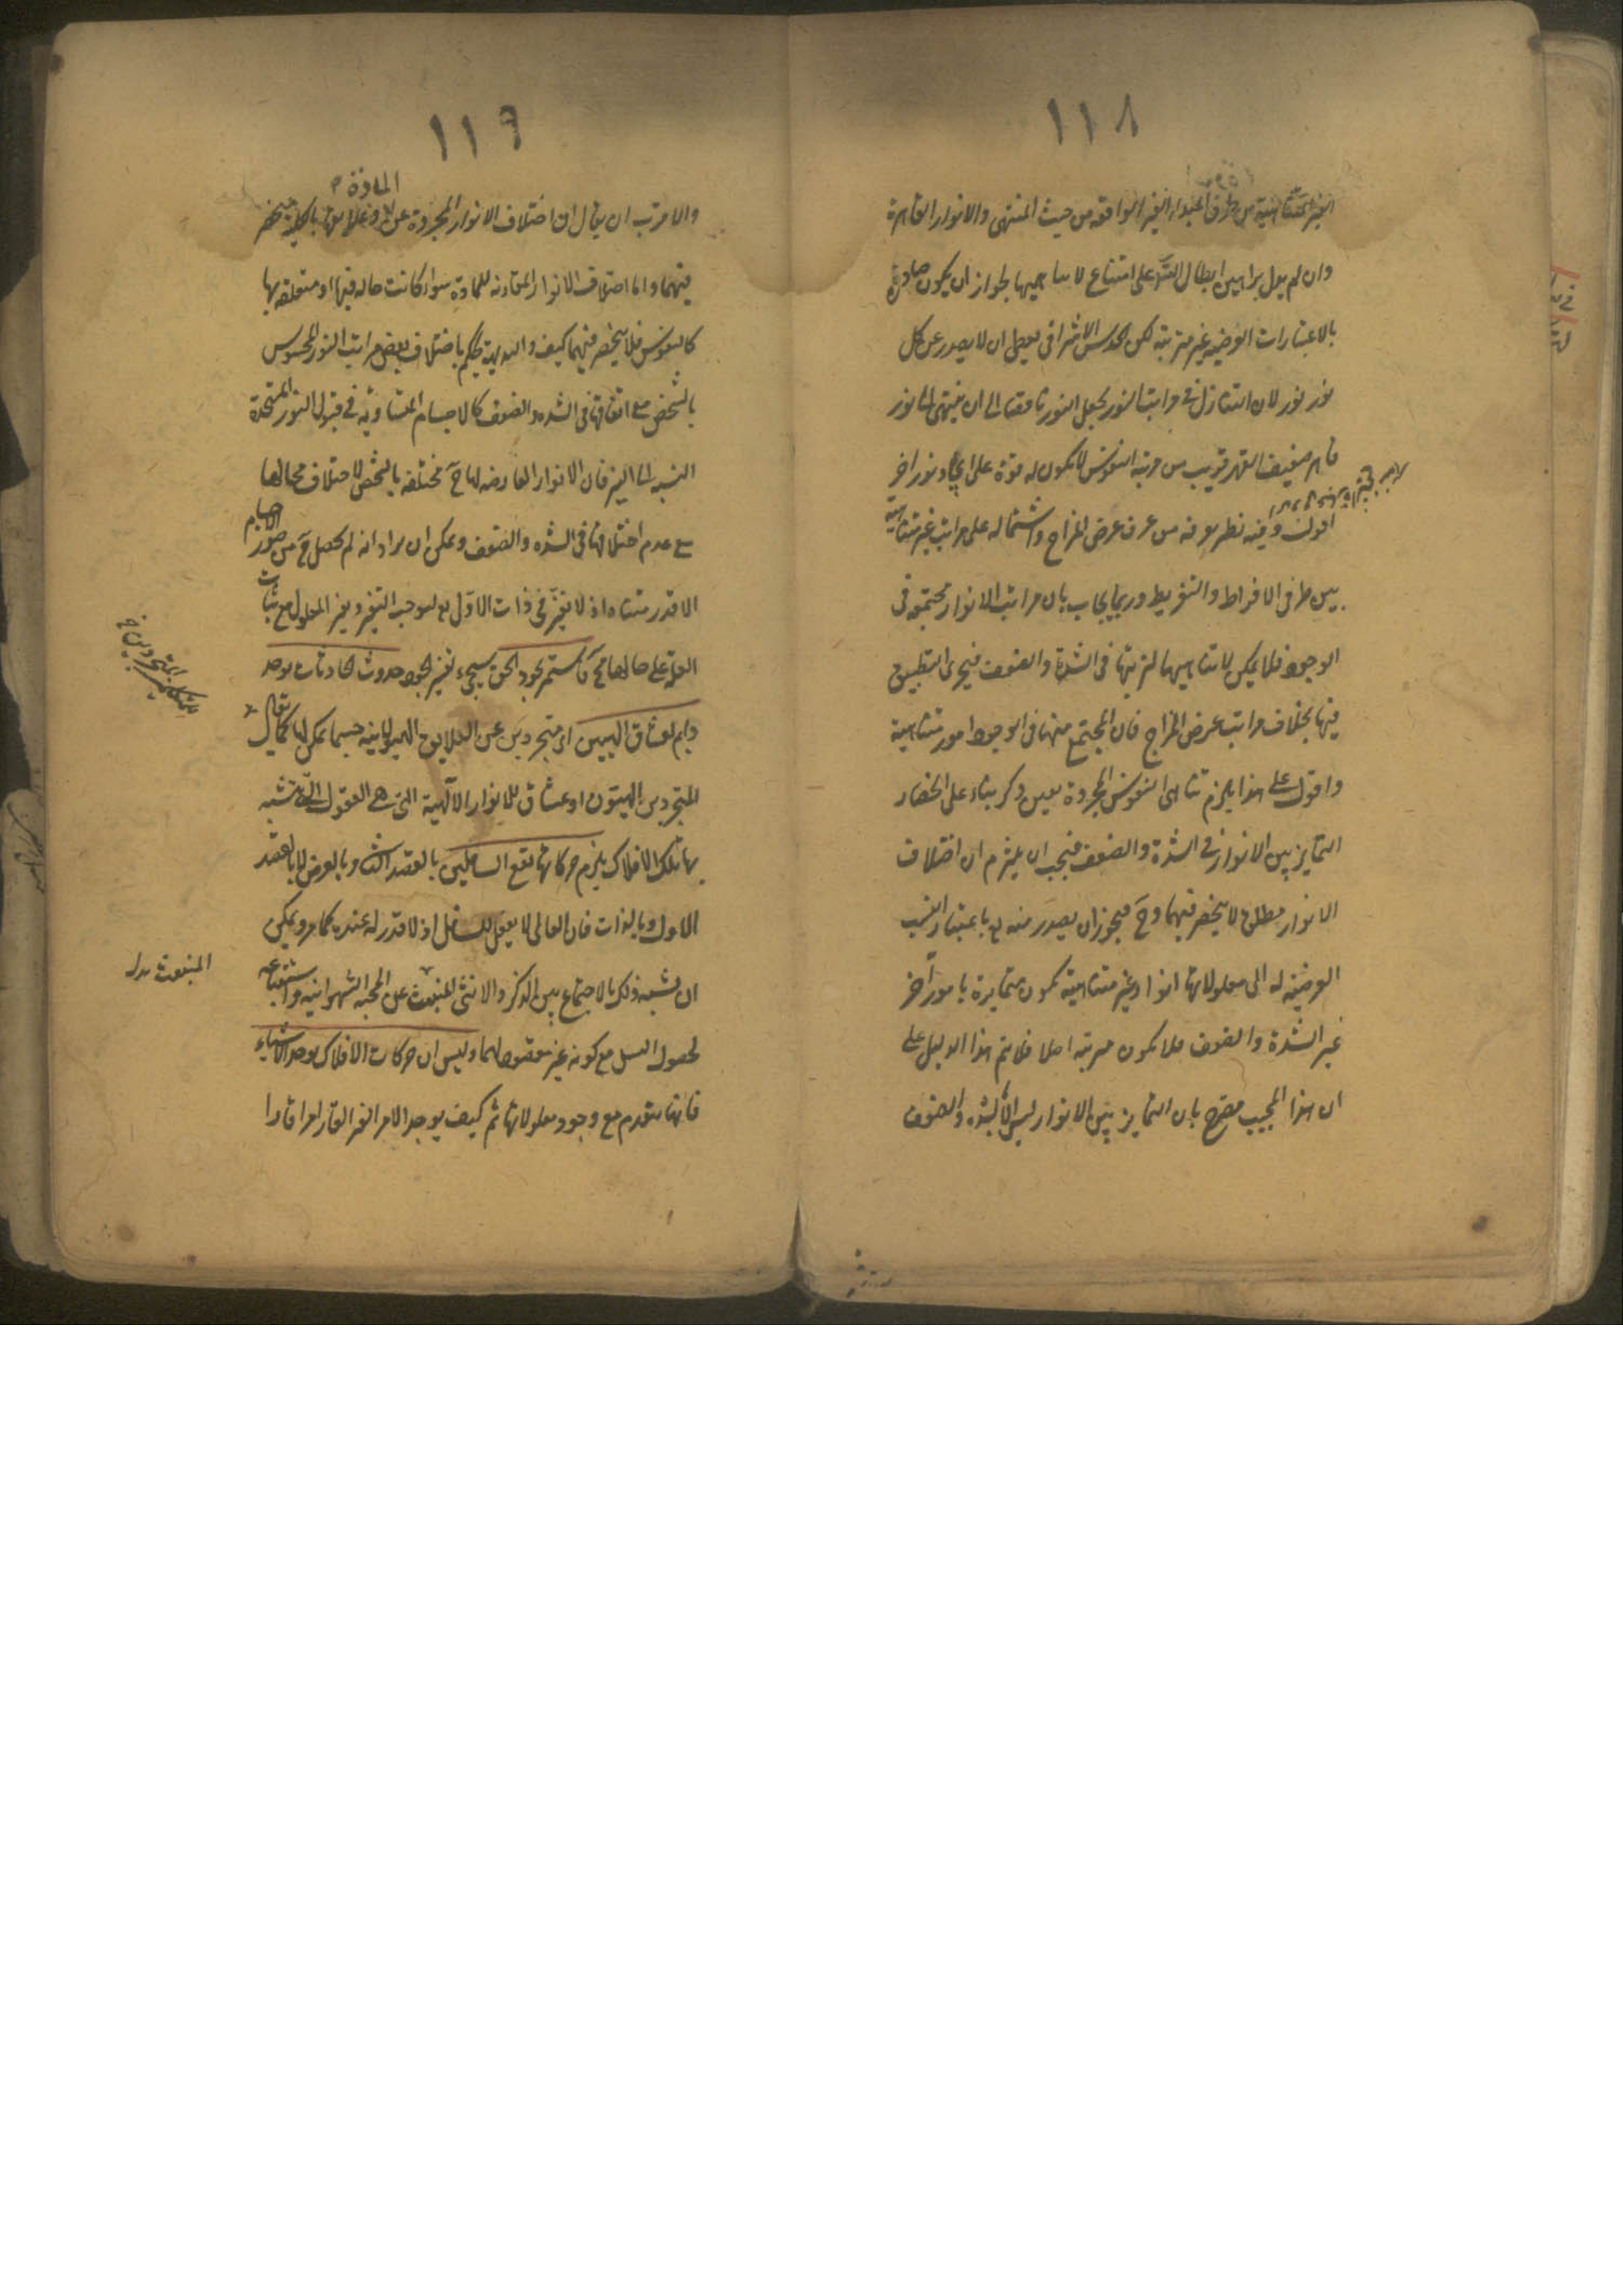 ١١٨
الغير المتناهية من طرف المبداء الغير الواقعه من حيث المنتهى والانوار القاهرة
وان لم يدل براهين ابطال التسـ على امتناع لا تناهيها لجواز ان يكون صادرة
بالاعتبارات العرضيه غير مترتبة لكن الحدس الاشراقى يعطى ان لا يصدر عن كل
نور نور لان التنازل فى مراتب النور يجعل النور ناقصا الى ان ينتهى الى نور
قاهر ضعيف القهر قريب من مرتبة النفوس لا يكون له قوة على ايجاد نور اخر
اقول وفيه نظر يعرفه من عرف عرض المزاج واشتماله على مراتب غير متناهية
بين طرفى الافراط والتفريط وربما يجاب بان مراتب الانوار مجتمعه فى
الوجود فلا يمكن لا تناهيها لترتبها فى الشدة والضعف فيجرى التطبيق
فيها بخلاف مراتب عرض المزاج فان المجتمع منها فى الوجود امور متناهية
واقول على هذا يلزم تناهى النفوس المجردة بعين ذكر بناء على انحصار
التمايز بين الانوار فى الشدة والضعف فيجب ان يلتزم ان اختلاف
الانوار مطلق لا ينحصر فيهما وح فيجوز ان يصدر منه باعتبار النسب
العرضية له الى معلولاتها انوار غير متناهية يكون متمايزة بامور اخر
غير الشدة والضعف فلا يكون مرتبه اصلا فلا يتم هذا الدليل على
ان هذا المجيب مصرح بان التمايز بين الانوار ليس الا بالشده والضعف
١١٩
المادة
والاقرب ان يقال ان اختلاف الانوار المجردة عن وعلايقها بالكلية منحصر
فيهما واما اختلاف الانوار المقارنه للمادة سواء كانت حاله فيها او متعلقه بها
كالنفوس فلا ينحصر فيهما كيف والبديهة يحكم باختلاف بعض مراتب النور المحسوس
بالشخص مع اتفاقها فى الشده والضعف كالاجسام المتساويه فى قبول النور المتحدة
النسبه الى النير فان الانوار العارضه لها ح مختلفه بالشخص لاختلاف محالها
مع عدم اختلافها فى الشده والضعف ويمكن ان يراد انه لم يحصل ح من صور الاجسام
الا قدر متناه اذ لا تغير فى ذات الاول ليوجب التغير وتغير المعلول مع ثبات
العلة على حالها مح فاستمر بجود الحق سيجىء تفسير الجود حدوث الحادثات بوجد
دايم لعشاق الهيين اى متجردين عن العلايق الهيولانيه حسبما يمكن لها كما يقال
المتجردين الهيتون او عشاق للانوار الالهية التى هى العقول التى يتشبه
بها تلك الافلاك يلزم حركاتها نفع السافلين بالقصد الثانى وبالعرض لا بالقصد
الاول وبالذات فان العالى لا يفعل للسافل اذ لا قدر له عنده كما مر ويمكن
ان يشبه ذلك بالاجتماع بين الذكر والانثى المنبعث عن المحبه الشهوانيه واستتباعه
لحصول النسل مع كونه غير مقصود لهما وليس ان حركات الافلاك يوجد الاشياء
فانها ينعدم مع وجود معلولاتها ثم كيف يوجد الامر الغير القار امرا قارا
المتجردين خ
المنبعث بدل